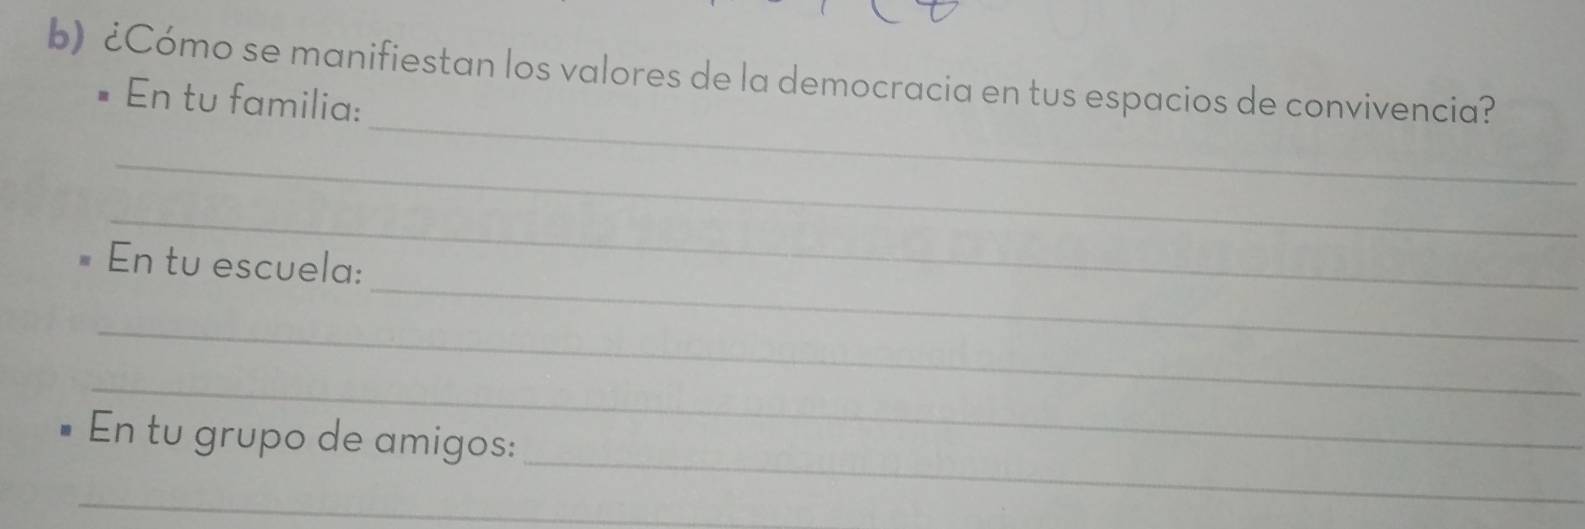 b) ¿Cómo se manifiestan los valores de la democracia en tus espacios de convivencia?
▪ En tu familia:
▪ En tu escuela:
▪ En tu grupo de amigos: